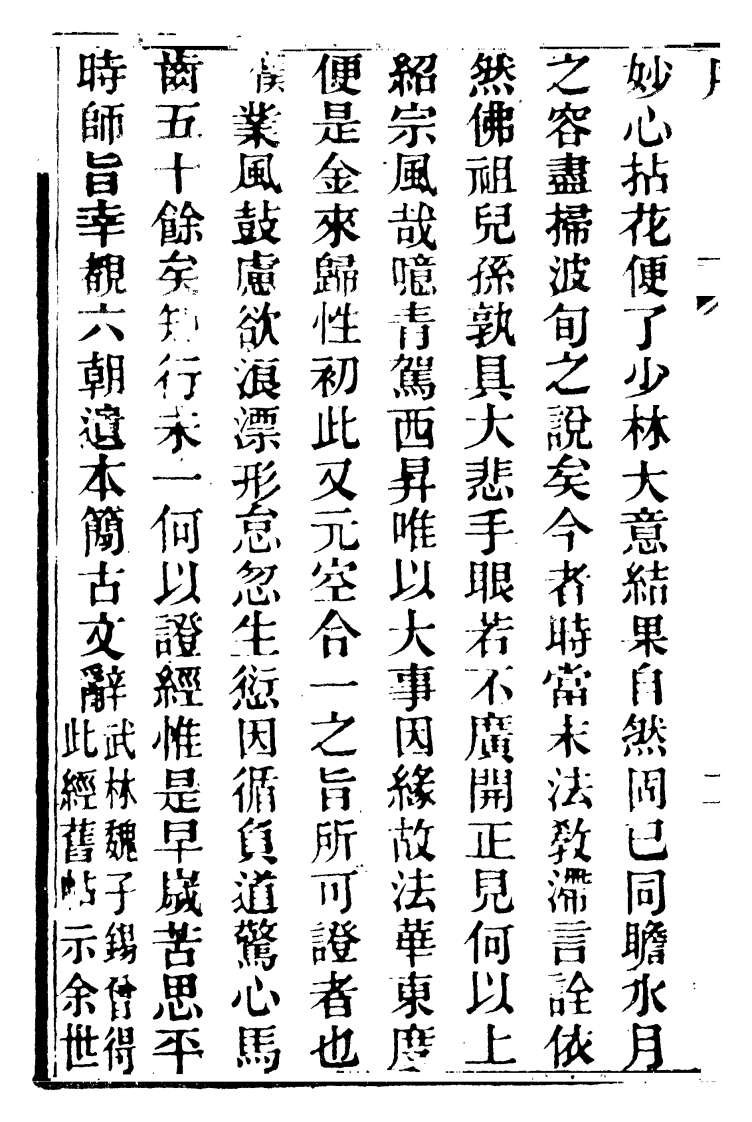 妙心拈花便了少林大意結果自然固已同瞻水月
之容盡掃波旬之說矣今者時當末法教滯言詮依
然佛祖兒孫孰具大悲手眼若不廣開正見何以上
紹宗風哉噫青駕西昇唯以大事因緣故法華東度
便是金來歸性初此又元空合一之旨所可證者也
業風鼓慮欲浪漂形怠忽生愆因循負道驚心馬
齒五十餘矣知行未一何以證經惟是早歲苦思平
時師旨幸觀六朝遺本簡古文辭武林魏子錫曾得
此經舊帖示余世